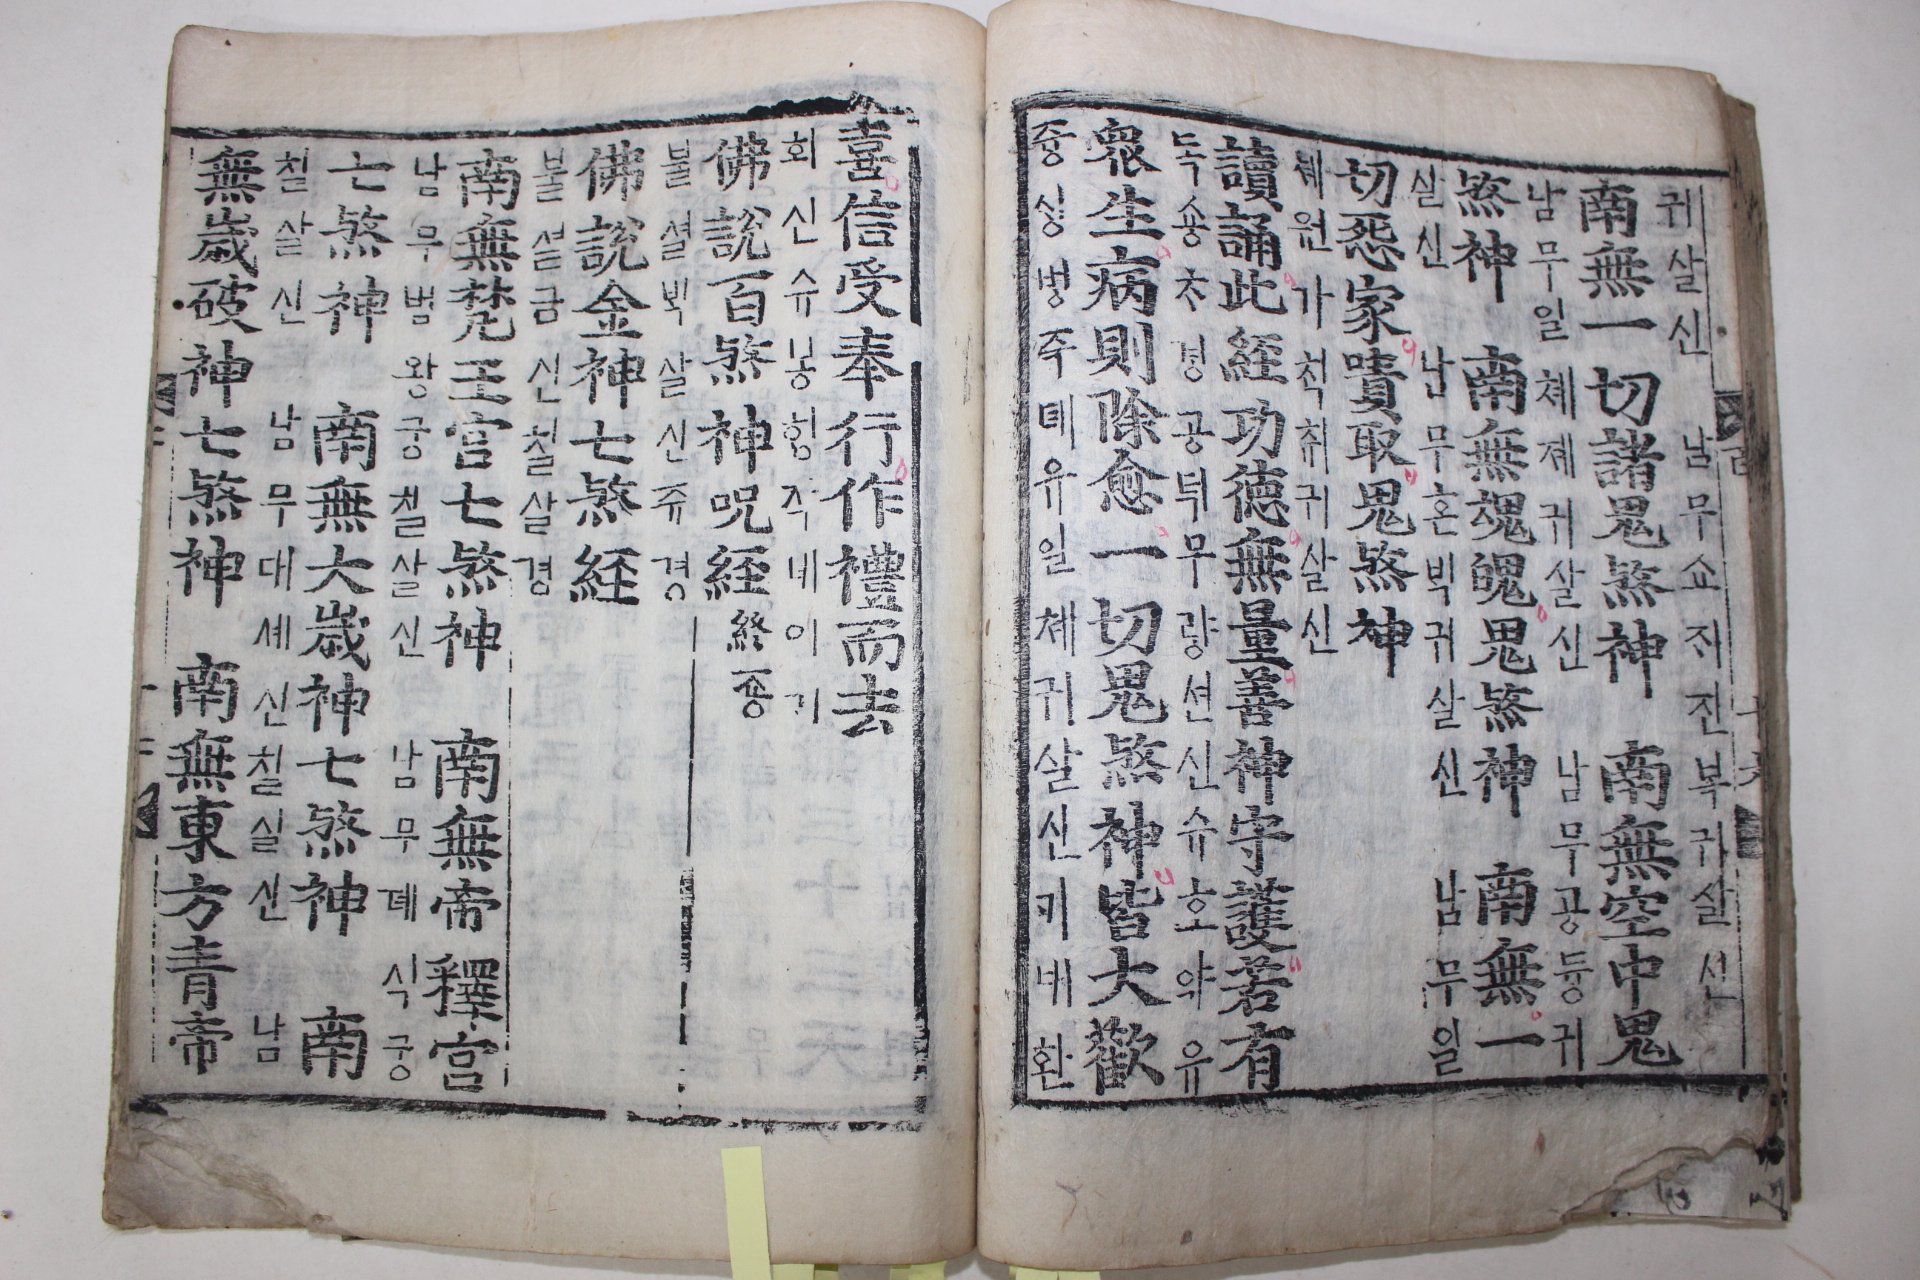 귀살신 남무쇼지진복귀살신
南無一切諸鬼煞神 南無空中鬼
남무일체졔귀살신 남무공듕귀
煞神 南無魂魄鬼煞神 南無一
살신 남무혼빅귀살신 남무일
切惡家嘖取鬼煞神
쳬원가취귀살신
讀誦此経功德無量善神守護若有
독숑경공덕무량션신슈호약유
衆生病則除愈一切鬼煞神皆大歡
즁싱병즉뎨유일쳬귀살신키대환
喜信受奉行作禮而去
희신슈봉힝작녜이거
佛說百煞神呪経終
불셜빅살신쥬경죵
佛說金神七煞経
불셜금신칠살경
南無梵王宮七煞神 南無帝釋宮
남무범왕궁칠살신 남무뎨식궁
七煞神 南無大歲神七煞神 南
칠살신 남무대셰신칠살신 남
無歲破神七煞神 南無東方青帝